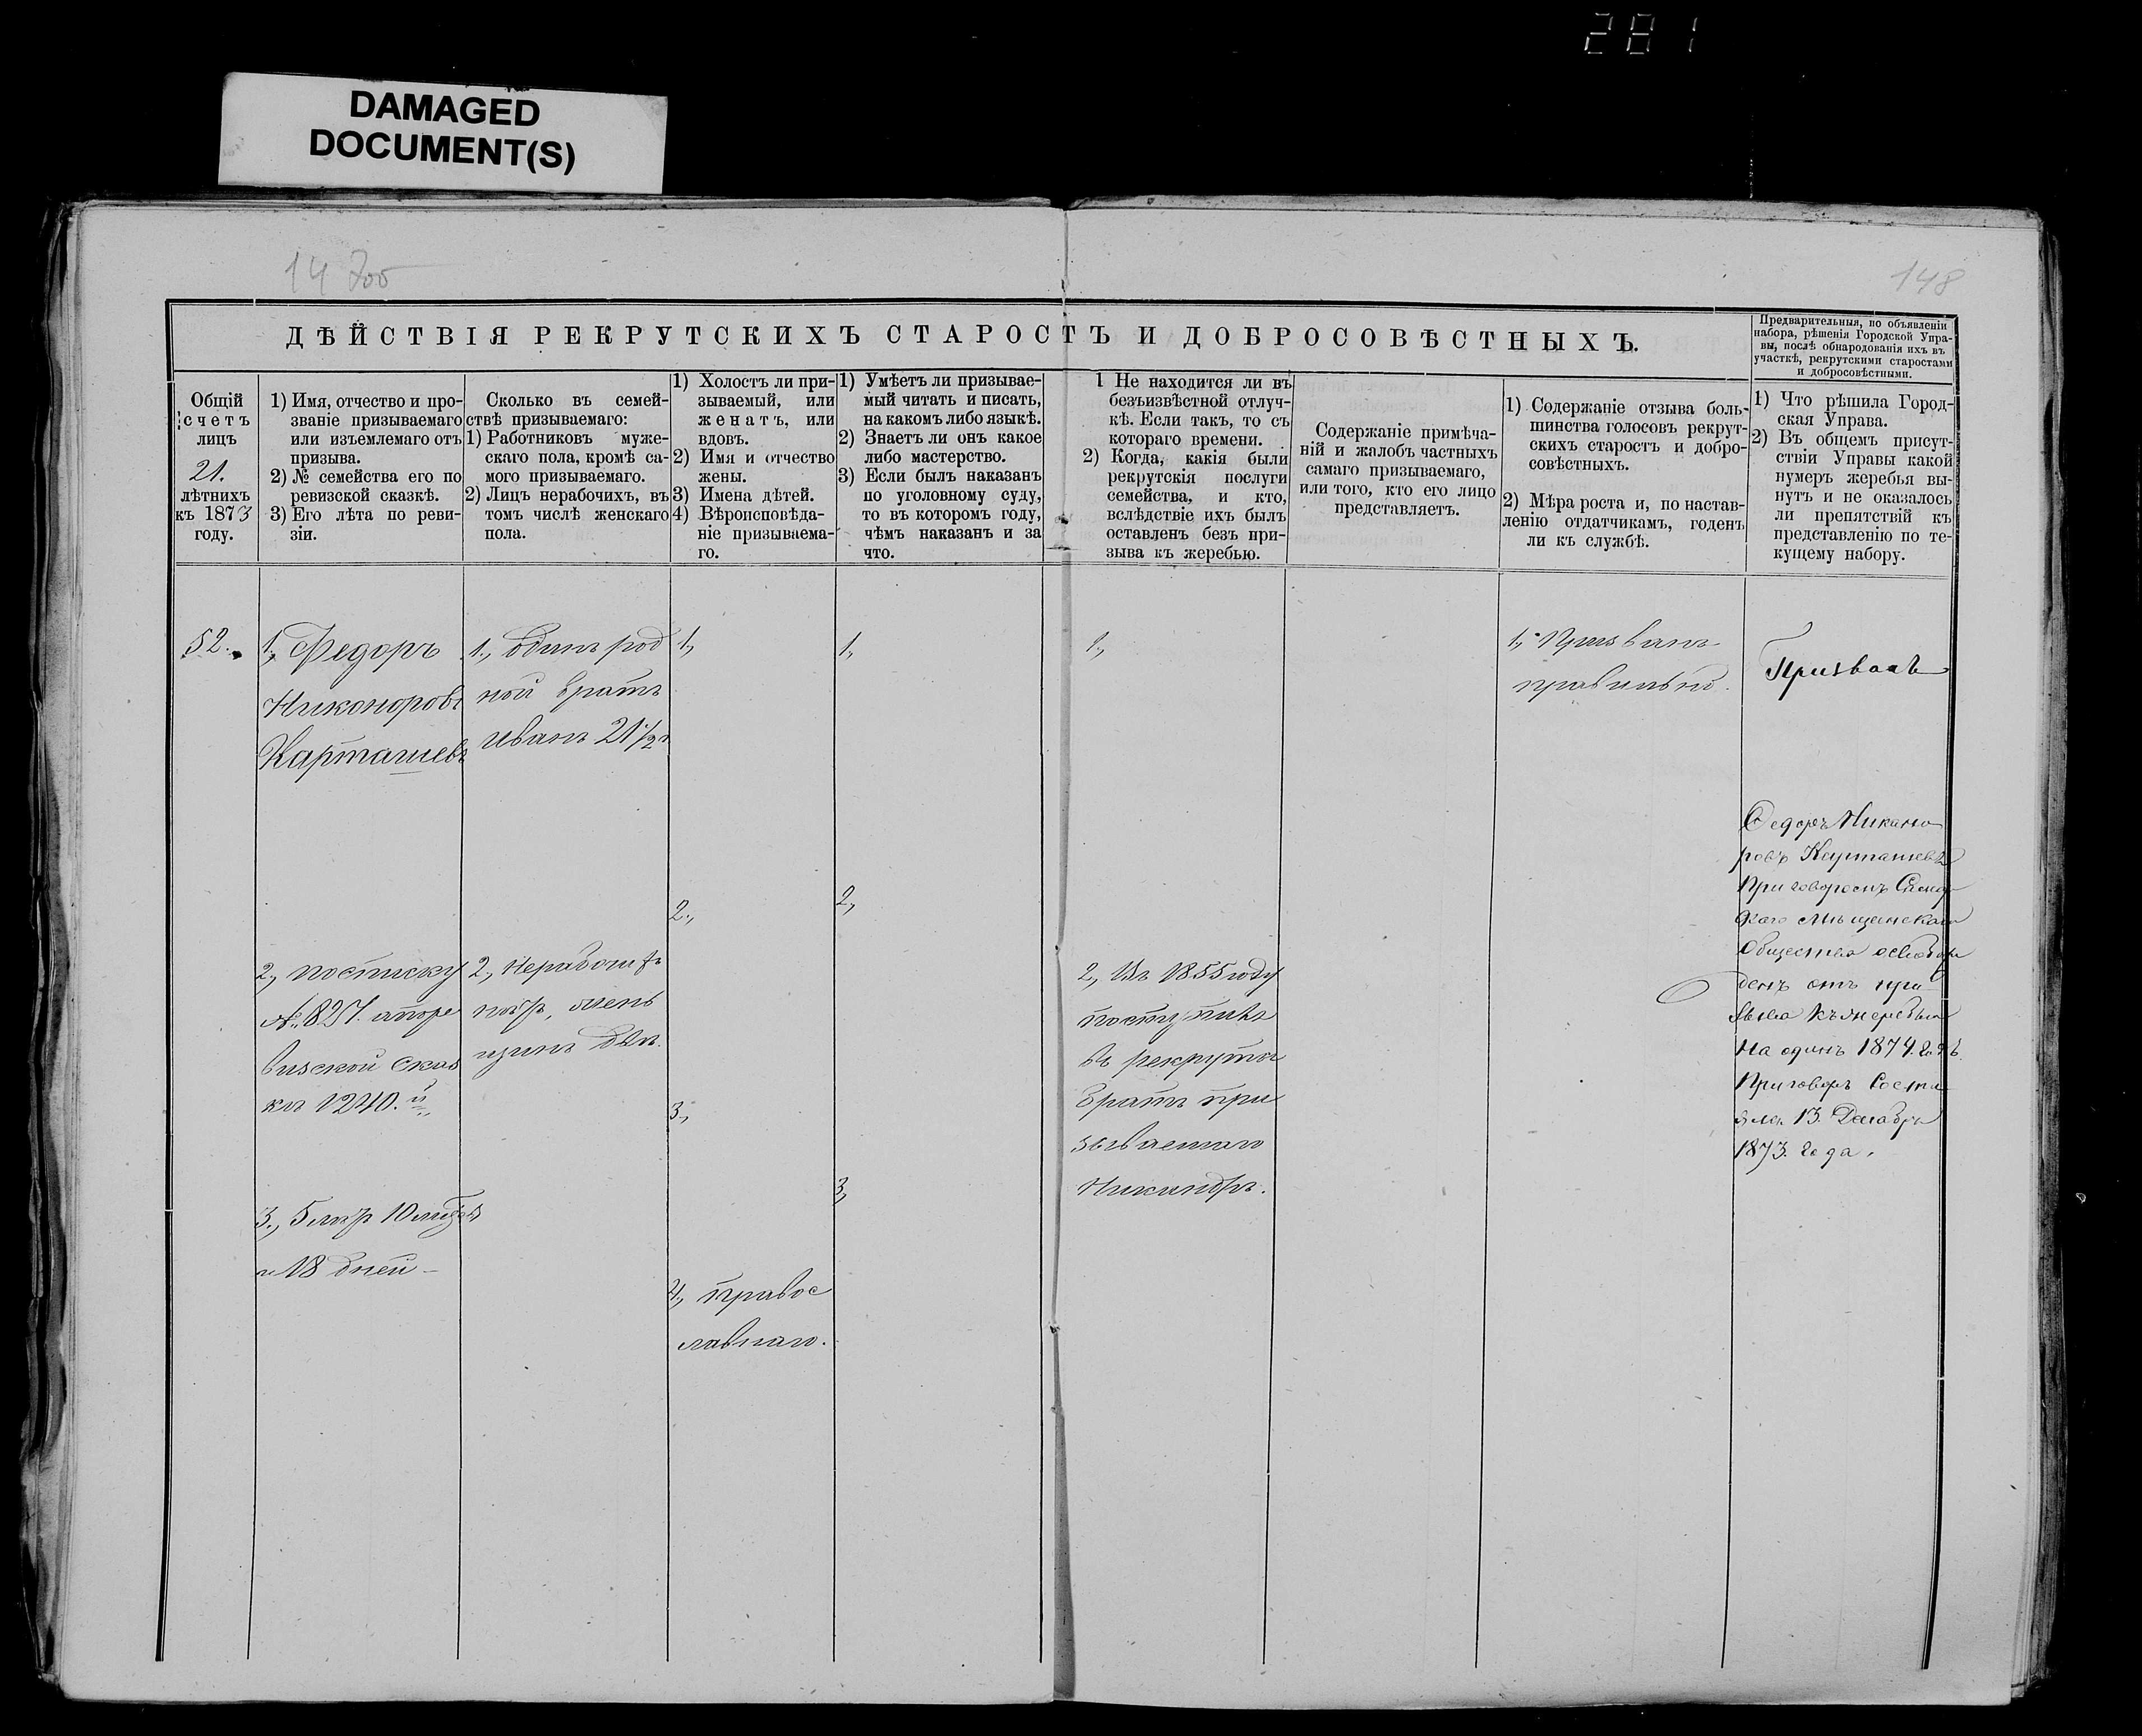 281
DAMAGED
DOCUMENT(S)
148
ДѢЙСТВІЯ РЕКРУТСКИХЪ СТАРОСТЪ И ДОБРОСОВѢСТНЫХЪ.
Предварительныя, по объявленіи
набора, рѣшенія Городской Упра-
вы, послѣ обнародованія ихъ въ
участкѣ, рекрутскими старостами
и добросовѣстными.
Общій
счетъ
лицъ
21.
лѣтнихъ
къ 1873
году.
1) Имя, отчество и про-
званіе призываемаго
или изъемлемаго отъ
призыва.
2) № семейства его по
ревизской сказкѣ.
3) Его лѣта по реви-
зіи.
Сколько въ семей-
ствѣ призываемаго:
1) Работниковъ муже-
скаго пола, кромѣ са-
мого призываемаго.
2) Лицъ нерабочихъ, въ
томъ числѣ женскаго
пола.
1) Холостъ ли при-
зываемый, или
женатъ, или
вдовъ.
2) Имя и отчество
жены.
3) Имена дѣтей.
4) Вѣроисповѣда-
ніе призываема-
го.
1) Умѣетъ ли призывае-
мый читать и писать,
на какомъ либо языкѣ.
2) Знаетъ ли онъ какое
либо мастерство.
3) Если былъ наказанъ
по уголовному суду,
то въ которомъ году,
чѣмъ наказанъ и за
что.
1 Не находится ли въ
безъизвѣстной отлуч-
кѣ. Если такъ, то съ
котораго времени.
2) Когда, какія были
рекрутскія послуги
семейства, и кто,
вслѣдствіе ихъ былъ
оставленъ безъ при-
зыва къ жеребью.
Содержаніе примѣча-
ній и жалобъ частныхъ
самаго призываемаго,
или того, кто его лицо
представляетъ.
1) Содержаніе отзыва боль-
шинства голосовъ рекрут-
скихъ старостъ и добро-
совѣстныхъ.
2) Мѣра роста и, по настав-
ленію отдатчикамъ, годенъ
ли къ службѣ.
1) Что рѣшила Город-
ская Управа.
2) Въ общемъ присут-
ствіи Управы какой
нумеръ жеребья вы-
нутъ и не оказалось
ли препятствій къ
представленію по те-
кущему набору.
52.
1., Федоръ
Никоноровъ
Карташевъ
2., по списку
№ 827. а по ре
визской сказ
кѣ 1240.й
3., 5 лѣтъ 10 мѣсяц
и 18 дней
1., Одинъ род
ной братъ
Иванъ 21½
2., Нерабочихъ
нѣтъ,
1.,
2.,
3.,
4., Правос
лавнаго.
1.,
2.,
3.,
1.,
2., Въ 1855 году
поступилъ
въ рекруты
братъ при
зываемаго
Никандръ.
1., Призванъ
правильно.
Призвать
Федоръ Никано
ровъ Карташевъ
Приговоромъ
Мѣщанскаго
Общества освобож
денъ отъ при
зыва къ жеребью
На одинъ 1874. годъ.
Приговоръ состо
ялся 13. Декабря
1873. года.